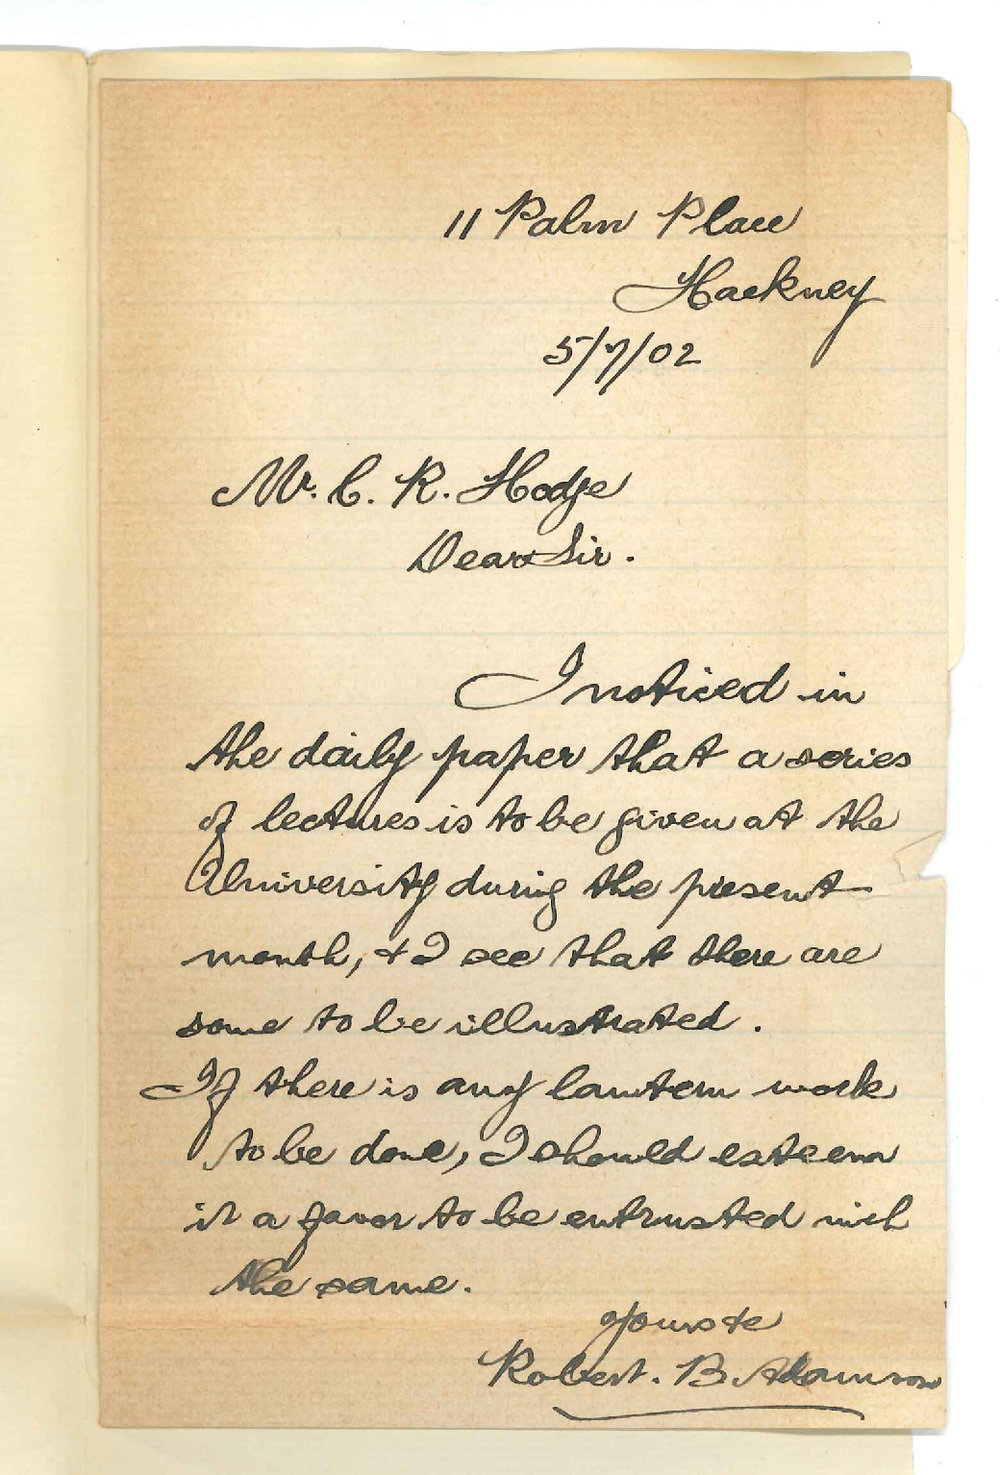 11 Palm Place
Hackney
5/7/02
Mr. C. R. Hodge
Dear Sir.
I noticed in
the daily paper that a series
of lectures is to be given at the
University during the present
month, & I see that there are
some to be illustrated.
If there is any lantern work
to be done, I should esteem
it a favor to be entrusted with
the same.
Yours &c
Robert. B. Adamson